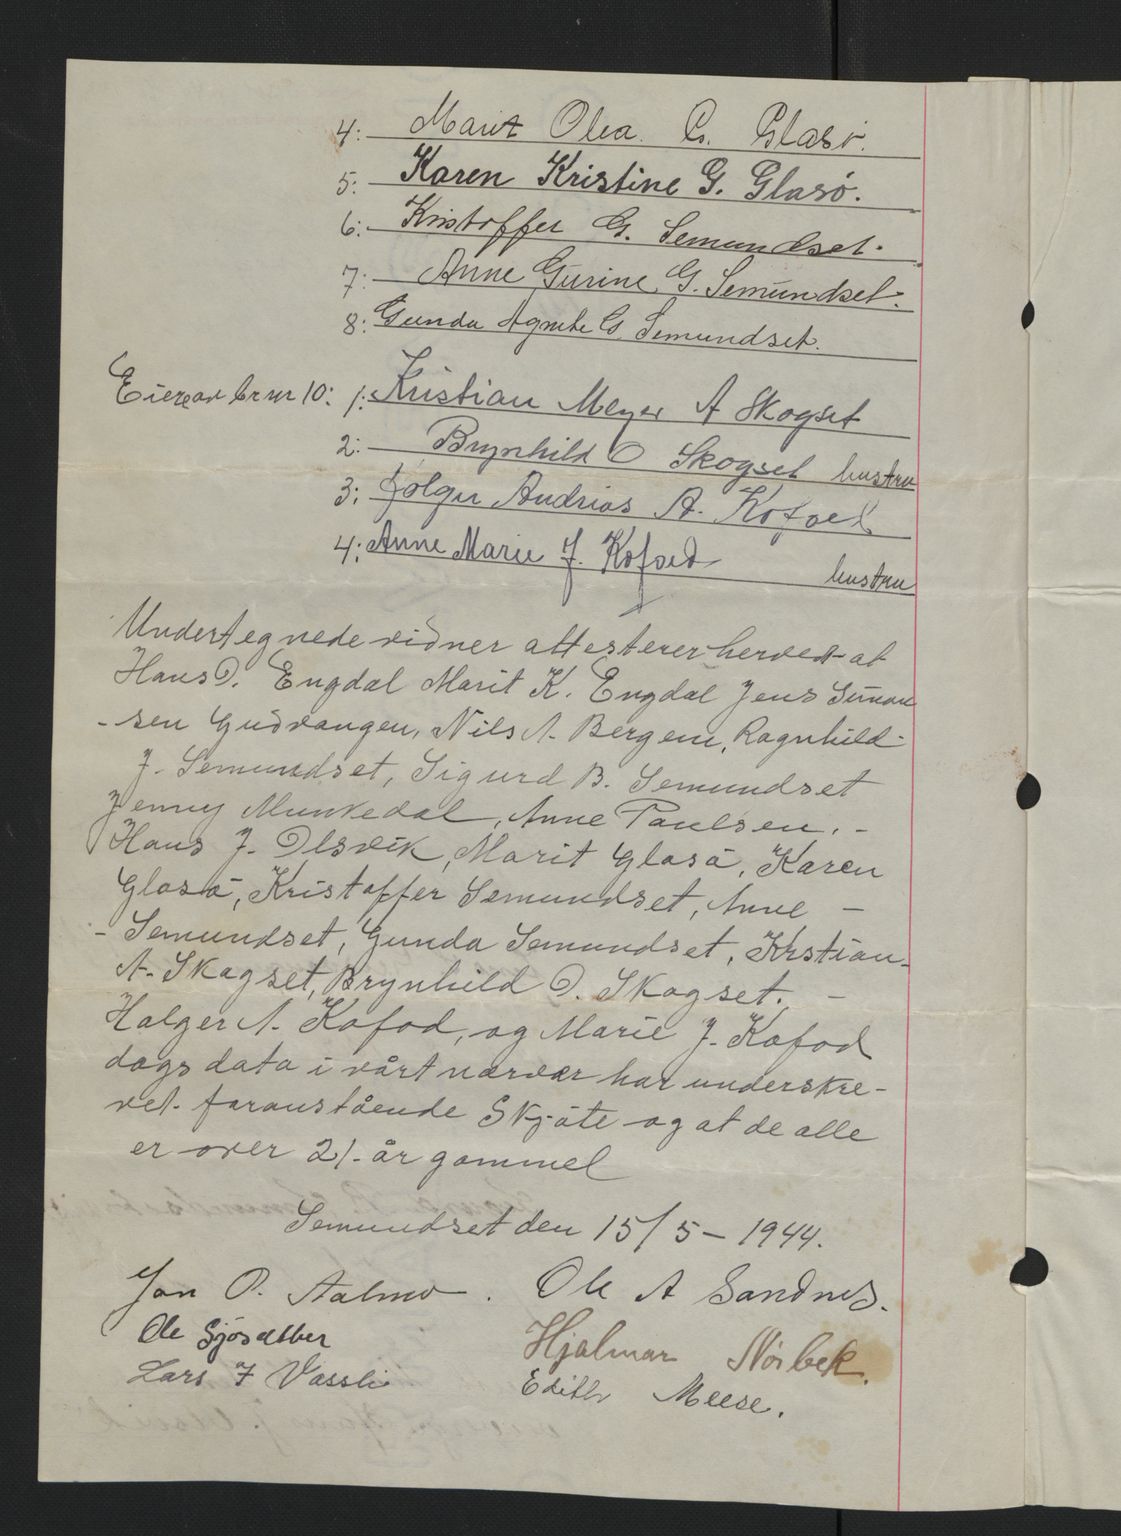 4: Marit Olea G. Glasø.
5: Karen Kristine G. Glasø.
6: Kristoffer G. Semundset.
7: Anne Gurine G. Semundset.
8: Gunda Agnete G. Semundset.
Eiere av br nr 10: 1: Kristian Meyer A Skogset
2: Brynhild O Skogset hustru
3: Holger Andrias A. Kofoed
4: Anne Marie J. Kofoed hustru
Undertegnede vidner attesterer herved at
Hans O. Engdal Marit K. Engdal Jens Simon
-sen Gudvangen, Nils A. Bergem, Ragnhild-
J. Semundset, Sigurd B. Semundset
Jenny Munkedal, Anne Paulsen. -
Hans J. Olsvik, Marit Glasø, Karen
Glasø, Kristoffer Semundset, Anne -
- Semundset, Gunda Semundset, Krstian-
A. Skogset, Brynhild O. Skogset. -
Holger A. Kofod, og Marie J. Kofod
dags dato i vårt nærvær har underskre-
vet foranstående Skjøte og at de alle
er over 21. år gammel
Semundset den 15/5 - 1944.
Jon O. Aalmo. Ole A Sandnes.
Ole Hjalmar Nørbek.
Lars J Vassli Edith Meese.